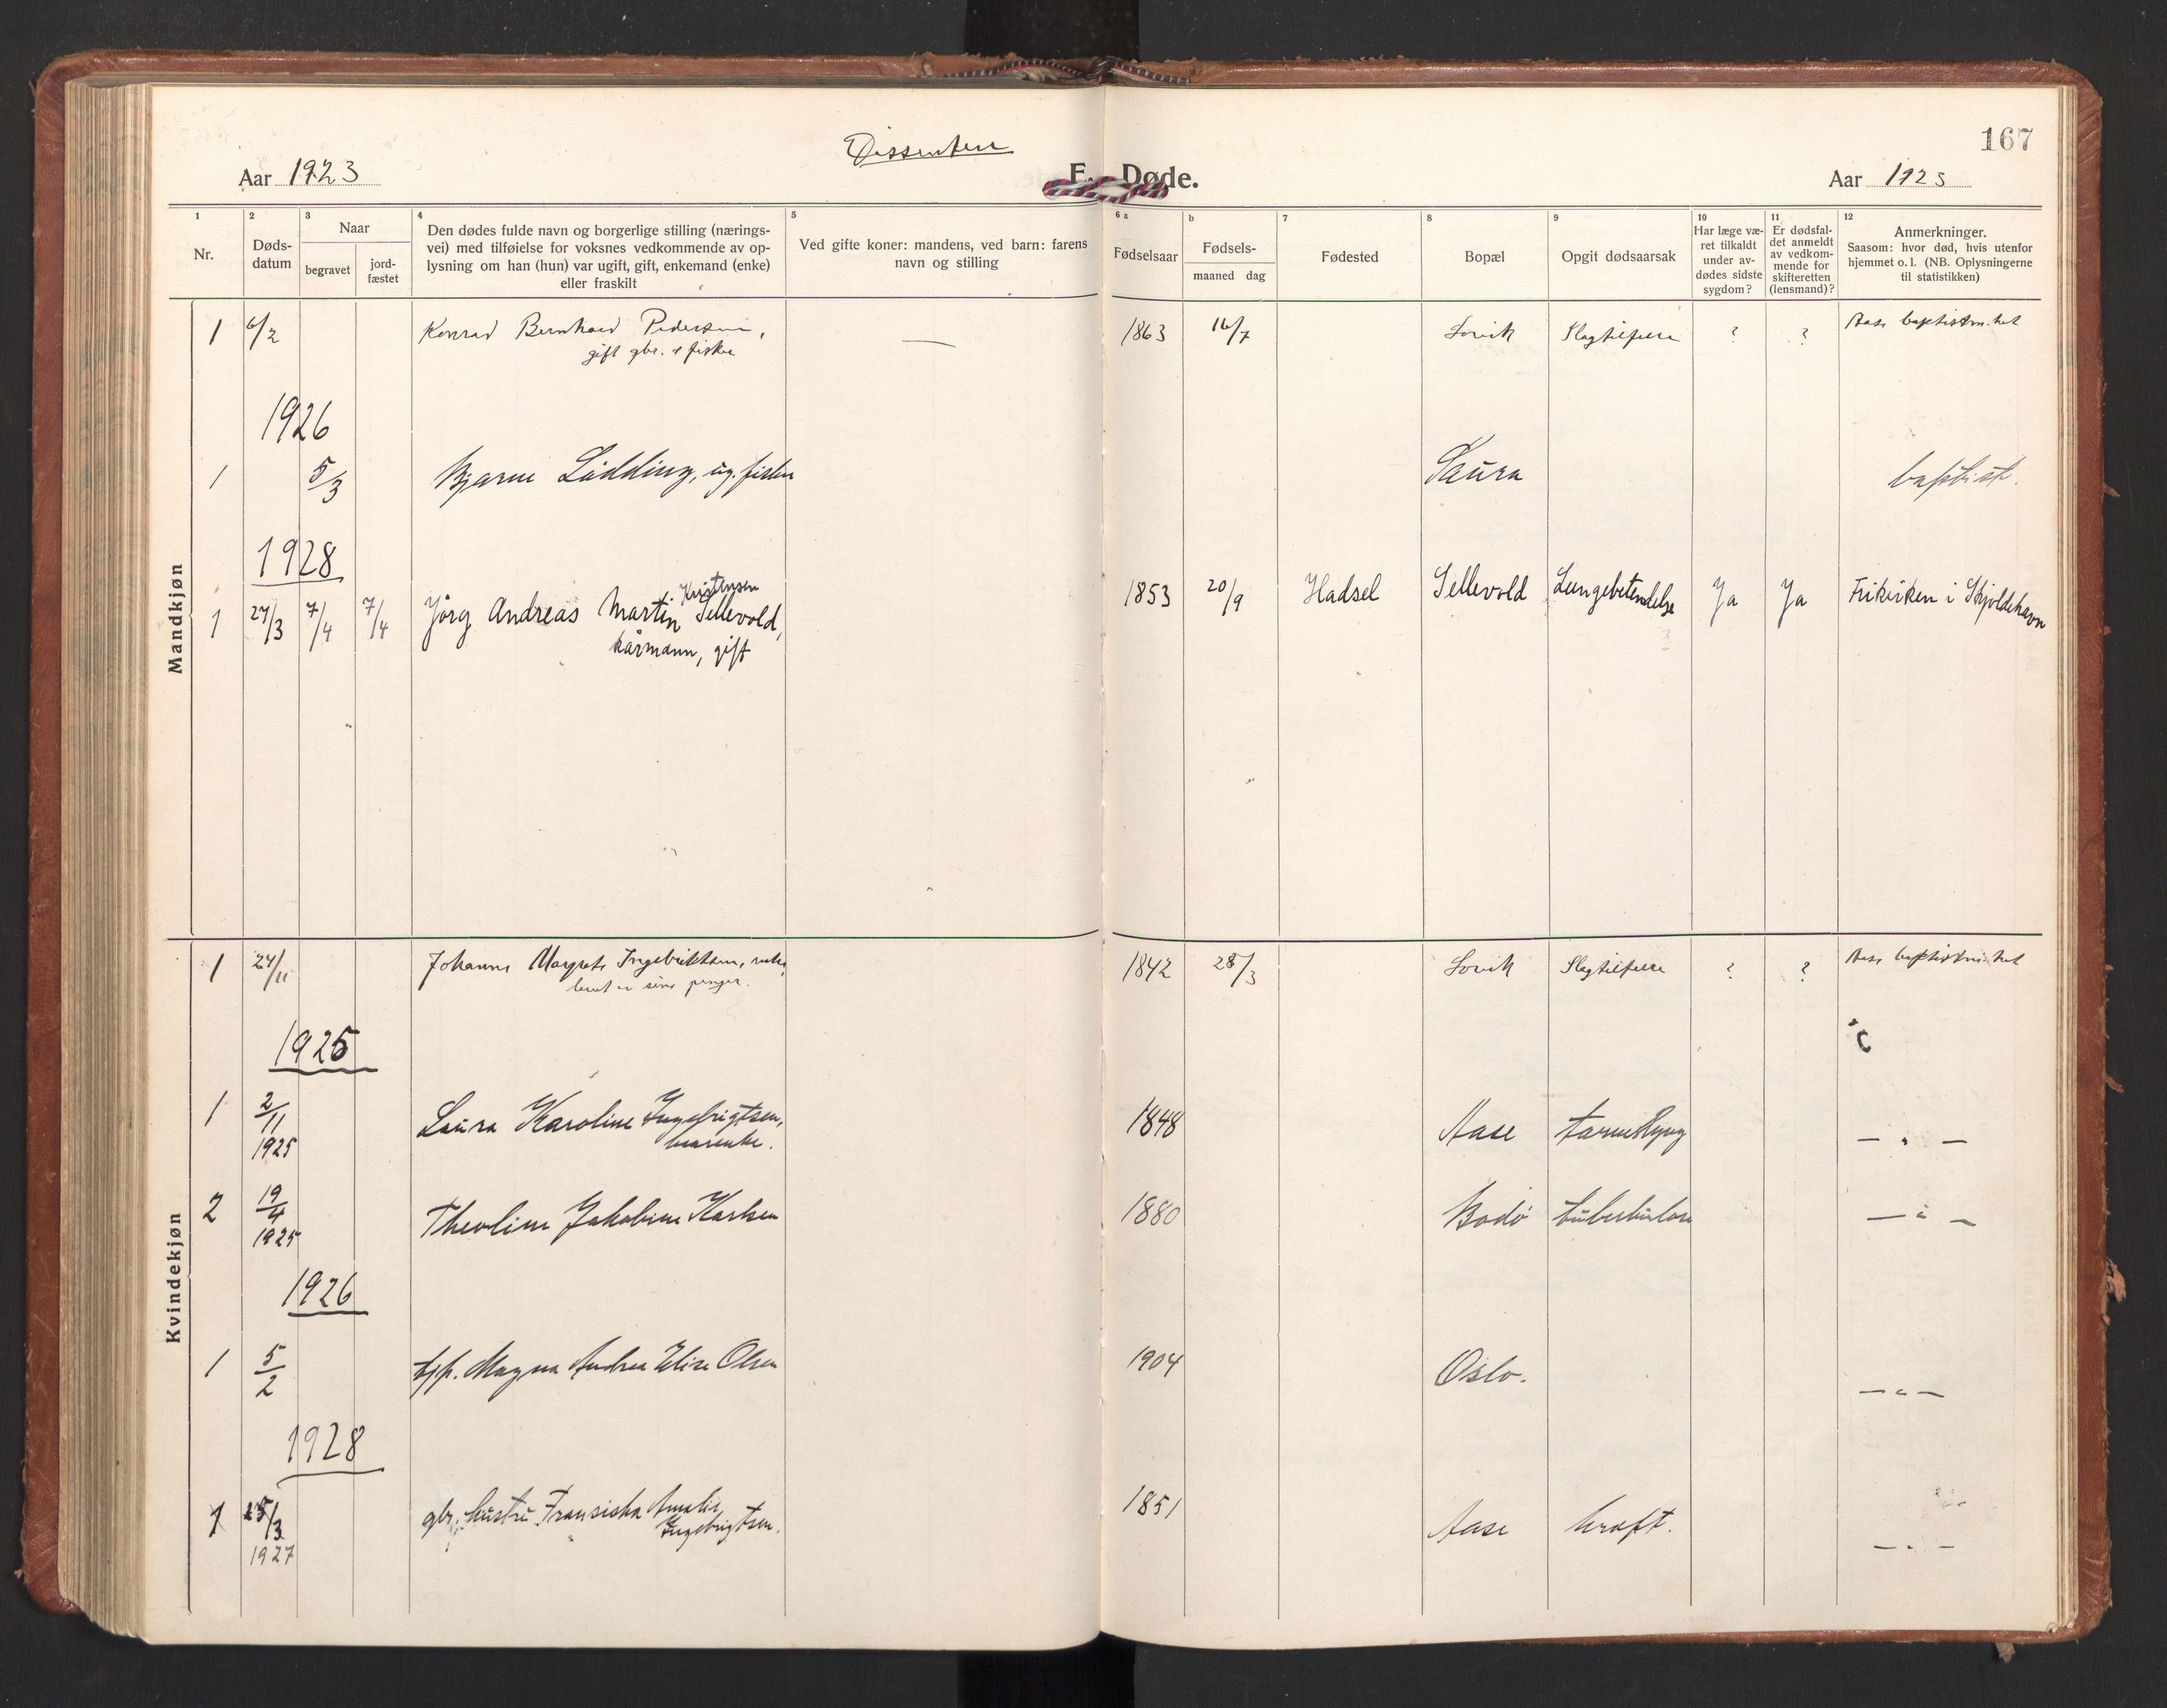 167
Dissentere
Aar 1923
E. Døde.
Aar 1923
1 2 3 4 5 6 a b 7 8 9 10 11 12
Nr.
Døds-
datum
Naar
begravet
jord-
fæstet
Den dødes fulde navn og borgerlige stilling (nærings-
vei) med tilføielse for voksnes vedkommende av op-
lysning om han (hun) var ugift, gift, enkemand (enke)
eller fraskilt
Ved gifte koner: mandens, ved barn: farens
navn og stilling
Fødselsaar
Fødsels-
maaned dag
Fødested
Bopæl
Opgit dødsaarsak
Har læge væ-
ret tilkaldt
under av-
dødes sidste
sygdom?
Er dødsfal-
det anmeldt
av vedkom-
mende for
skifteretten
(lensmand)?
Anmerkninger.
Saasom: hvor død, hvis utenfor
hjemmet o. l. (NB. Oplysningerne
til statistikken)
Mandkjøn
1 6/2 Konrad Bernhard Pedersen, — 1863 16/7 Lovik Slagtilfelle ? ? Aase baptistm.het
gift gbr. & fisker
1926
1 5/3 Bjarne Lidding, ug. fisker Saura baptist.
1928
Kristensen
1 27/3 7/4 7/4 Jörg Andreas Martin Sellevold, 1853 20/9 Hadsel Sellevold Lungebetendelse Ja Ja Frikirken i Skjoldehavn
kårmann, gift
Kvindekjøn
1 24/11 Johanna Margrete Ingebriktsen, enke, 1842 28/3 Lovik Slagtilfelle ? ? Aase baptistm.het
levet av sine penger.
1925
1 2/11 1925 Laura Karoline Ingebrigtsen, 1848 Aase tarmslyng — " —
kaarenke.
2 19/4 1925 Theoline Jakobine Karlsen 1880 Bodö tuberkulose — " —
1926
1 5/2 tjp. Magna Andrea Elise Olsen 1904 Oslo. — " —
1928
1 25/3 1927 gbr. hustru Fransiska Amalia 1851 Aase kræft. — " —
Ingebrigtsen.